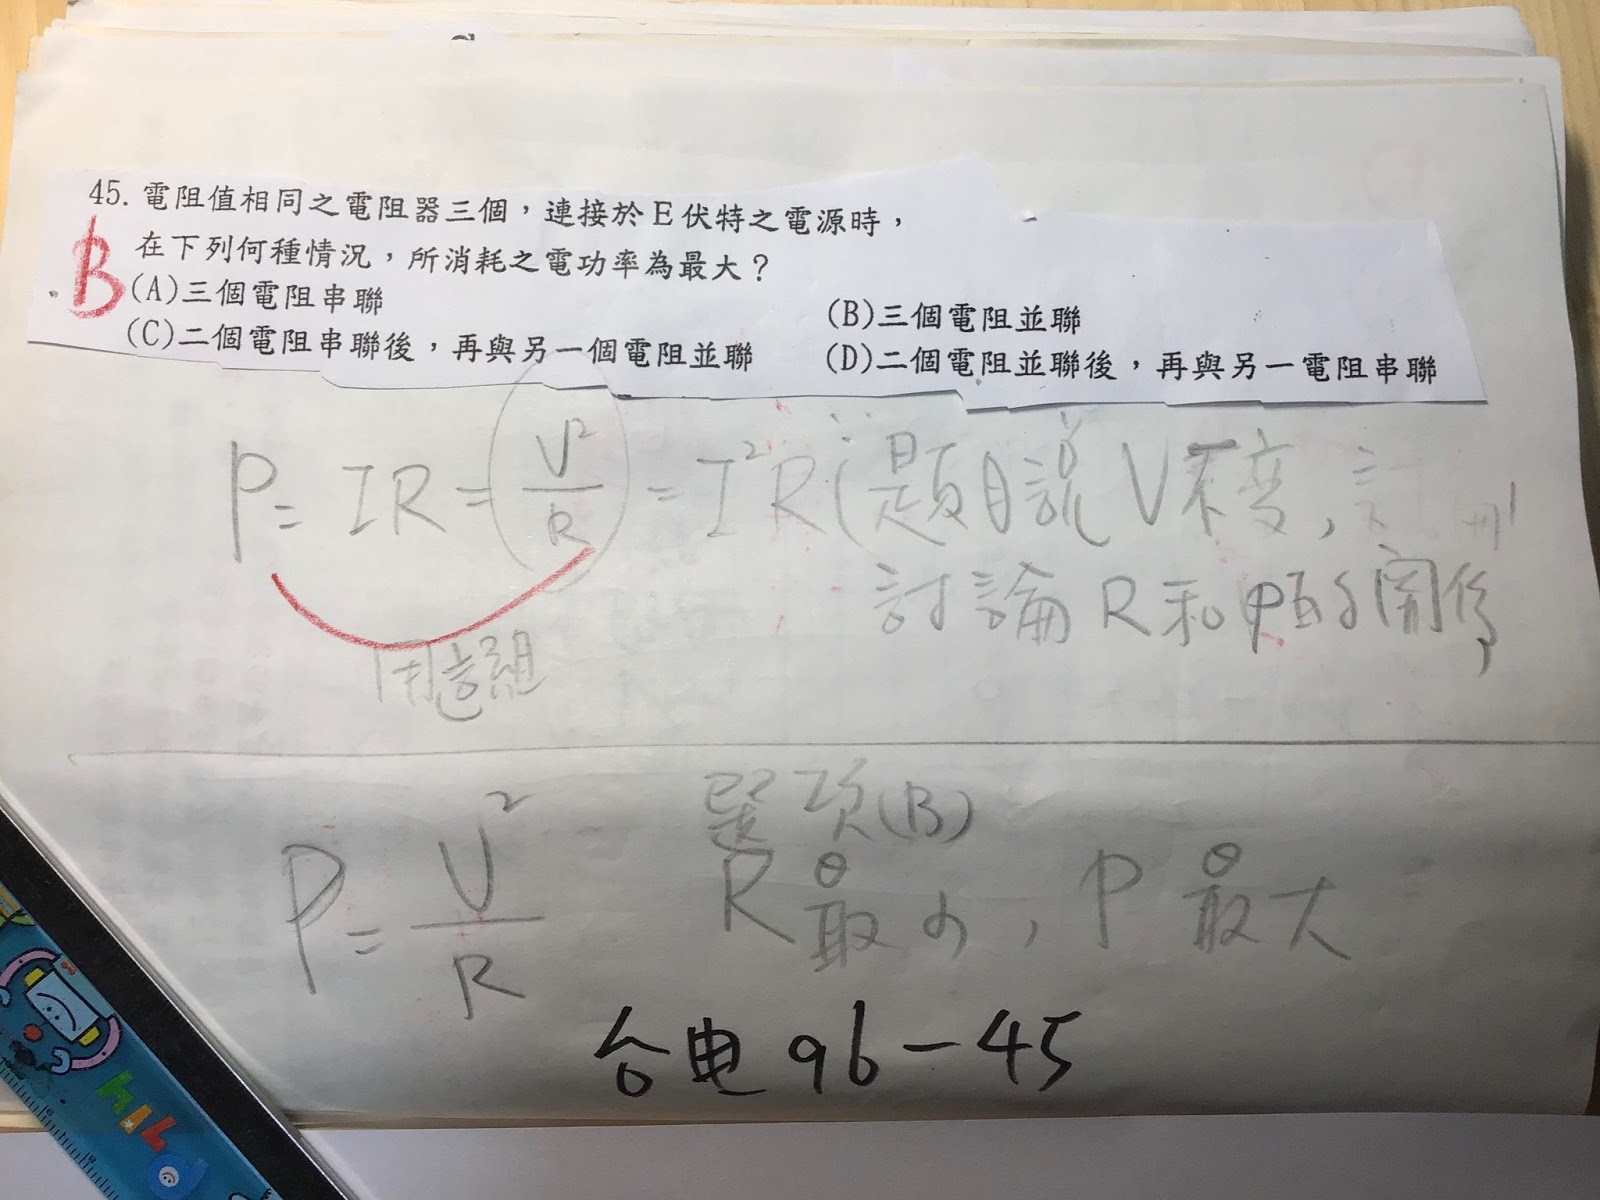 45. 電阻值相同之電阻器三個，連接於E伏特之電源時，
在下列何種情況，所消耗之電功率為最大？
B
(A)三個電阻串聯
(B)三個電阻並聯
(C)二個電阻串聯後，再與另一個電阻並聯
(D)二個電阻並聯後，再與另一電阻串聯
P = IR = V²/R = I²R (∵題目說V不變,
討論R和P的關係
用這組
P = V²/R
選項(B)
R最小, P最大
台电 96-45